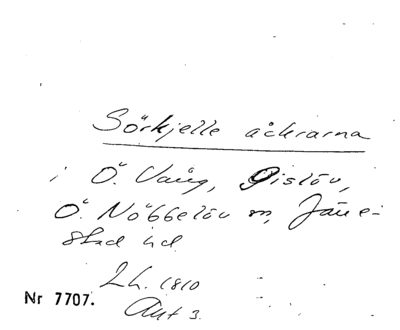 Sörkjelle åkrarna
i Ö. Vång, Gislöv,
Ö. Nöbbelöv sn, Järre-
stad hd
Lh. 1810
Akt 3.
Nr 7707.